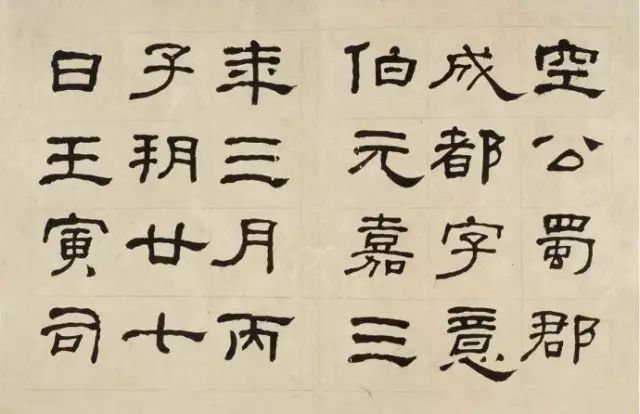 空公蜀郡
成都字意
伯元嘉三
年三月丙
子朔廿七
日壬寅司